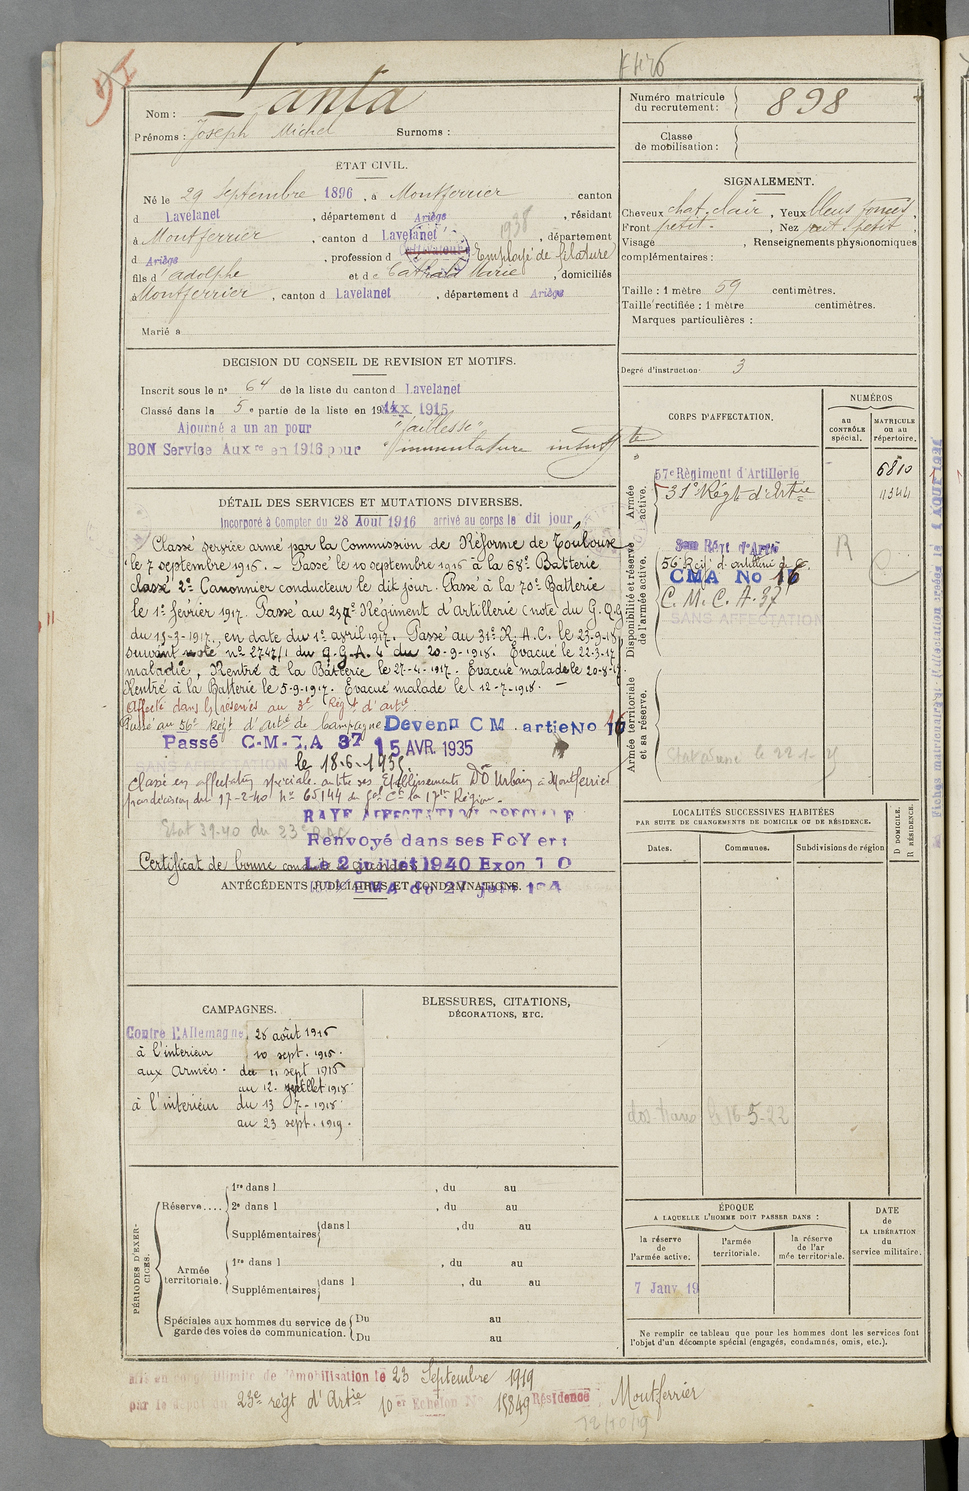 Nom : Lanta
Prénoms : Joseph Michel Surnoms :
ÉTAT CIVIL.
Né le 29 Septembre 1896, à Montferrier canton
d Lavelanet, département d Ariège, résidant
à Montferrier, canton d Lavelanet, département
d Ariège, profession d Cultivateur Employé de filature 1938
fils d'Adolphe et de Cathala Marie, domiciliés
à Montferrier, canton d Lavelanet, département d Ariège
Marié à
DECISION DU CONSEIL DE REVISION ET MOTIFS.
Inscrit sous le n° 64 de la liste du canton d Lavelanet
Classé dans la 5e partie de la liste en 1915
Ajourné a un an pour "faiblesse"
BON Service Auxre en 1916 pour
DÉTAIL DES SERVICES ET MUTATIONS DIVERSES.
Incorporé à Compter du 28 Août 1916 arrivé au corps le dit jour
Classé service armé par la Commission de Réforme de Toulouse
le 7 septembre 1916. - Passé le 10 septembre 1916 à la 68e Batterie
classé 2e Canonnier conducteur le dit jour. Passé à la 70e Batterie
le 1er février 1917. Passé au 257e Régiment d'Artillerie (note du G.Q.G
du 15-3-1917, en date du 1er avril 1917. Passé au 31e R.A.C. le 23-9-18
suivant note n° 2747/1 du G.Q.A. 4 du 20-9-1918. Evacué le 22-3-17
maladie, Rentré à la Batterie le 27-4-1917. Evacué malade le 20-8-17
Rentré à la Batterie le 5-9-1917. Evacué malade le 12-7-1918. -
Affecté dans la réserve au 3e Régt d'artie
Passé au 56e Régt d'Artie de Campagne Devenu C M artie No 16
Passé C-M-C A 37 15 AVR. 1935
le 18-6-1935
Classé en affectation spéciale au titre des Etablissements Dr Urbain à Montferrier
par décision du 17-2-40 n° 65144 du Gal Ct la 17me Région.
RAYE AFFECTATION SPECIALE
Etat 39.40 du 23e RAC
Renvoyé dans ses FoYers
Certificat de bonne conduite accordé
Le 2 juillet 1940
ANTÉCÉDENTS JUDICIAIRES ET CONDAMNATIONS.
CAMPAGNES.
Contre l'Allemagne, 28 août 1916
à l'intérieur 10 sept. 1916.
aux Armées. du 11 sept 1916
au 12. juillet 1918
à l'intérieur du 13 - 7 - 1918
au 23 sept. 1919.
BLESSURES, CITATIONS,
DÉCORATIONS, ETC.
PÉRIODES D'EXERCICES.
Réserve....
1re dans l , du au
2e dans l , du au
Supplémentaires dans l , du au
Armée territoriale.
1re dans l , du au
Supplémentaires dans l , du au
Spéciales aux hommes du service de
garde des voies de communication.
Du au
Du au
Numéro matricule
du recrutement : 898
Classe
de mobilisation :
SIGNALEMENT.
Cheveux chat. clair, Yeux bleus foncés,
Front petit, Nez petit,
Visage , Renseignements physionomiques
complémentaires :
Taille : 1 mètre 59 centimètres.
Taille rectifiée : 1 mètre centimètres.
Marques particulières :
Degré d'instruction 3
CORPS D'AFFECTATION.
NUMÉROS
au CONTRÔLE spécial.
MATRICULE ou au répertoire.
Armée active.
57e Régiment d'Artillerie 6810
31e Régt d'Artie 11344
Disponibilité et réserve de l'armée active.
56e Régt d'artillerie de C.
CMA No 16
C.M.C.A. 37
SANS AFFECTATION
R
Armée territoriale et sa réserve.
LOCALITÉS SUCCESSIVES HABITÉES
PAR SUITE DE CHANGEMENTS DE DOMICILE OU DE RÉSIDENCE.
Dates. Communes. Subdivisions de région
D DOMICILE.
R RÉSIDENCE.
le 16-5-22
ÉPOQUE
A LAQUELLE L'HOMME DOIT PASSER DANS :
la réserve de l'armée active.
l'armée territoriale.
la réserve de l'armée territoriale.
DATE
de
LA LIBÉRATION
du
service militaire.
7 Janv 19
Ne remplir ce tableau que pour les hommes dont les services font
l'objet d'un décompte spécial (engagés, condamnés, omis, etc.).
en congé illimité de démobilisation le 23 Septembre 1919
par le dépôt du 23e régt d'Artie 10er Echelon No 15849 Résidence Montferrier
12/10/19